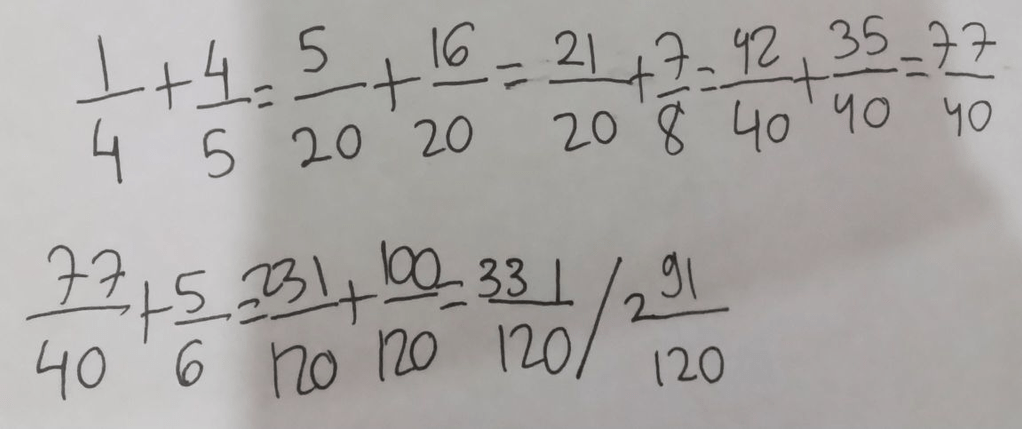 1/4 + 4/5 = 5/20 + 16/20 = 21/20 + 7/8 = 42/40 + 35/40 = 77/40
77/40 + 5/6 = 231/120 + 100/120 = 331/120 / 2 91/120